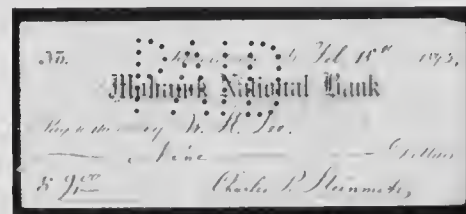 No. Feb 15th 1895.
PAID
Mohawk National Bank
Pay to the order of
Nine Dollars
$ 9.00 Charles P. Steinmetz